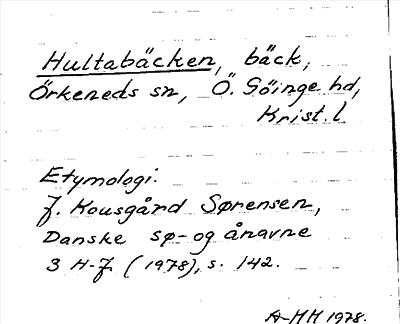 Hultabäcken, bäck,
Örkeneds sn, Ö. Göinge hd,
Krist. l.
Etymologi:
J. Kousgård Sørensen,
Danske sø- og ånavne
3 H-J (1978), s. 142.
A-MH 1978.